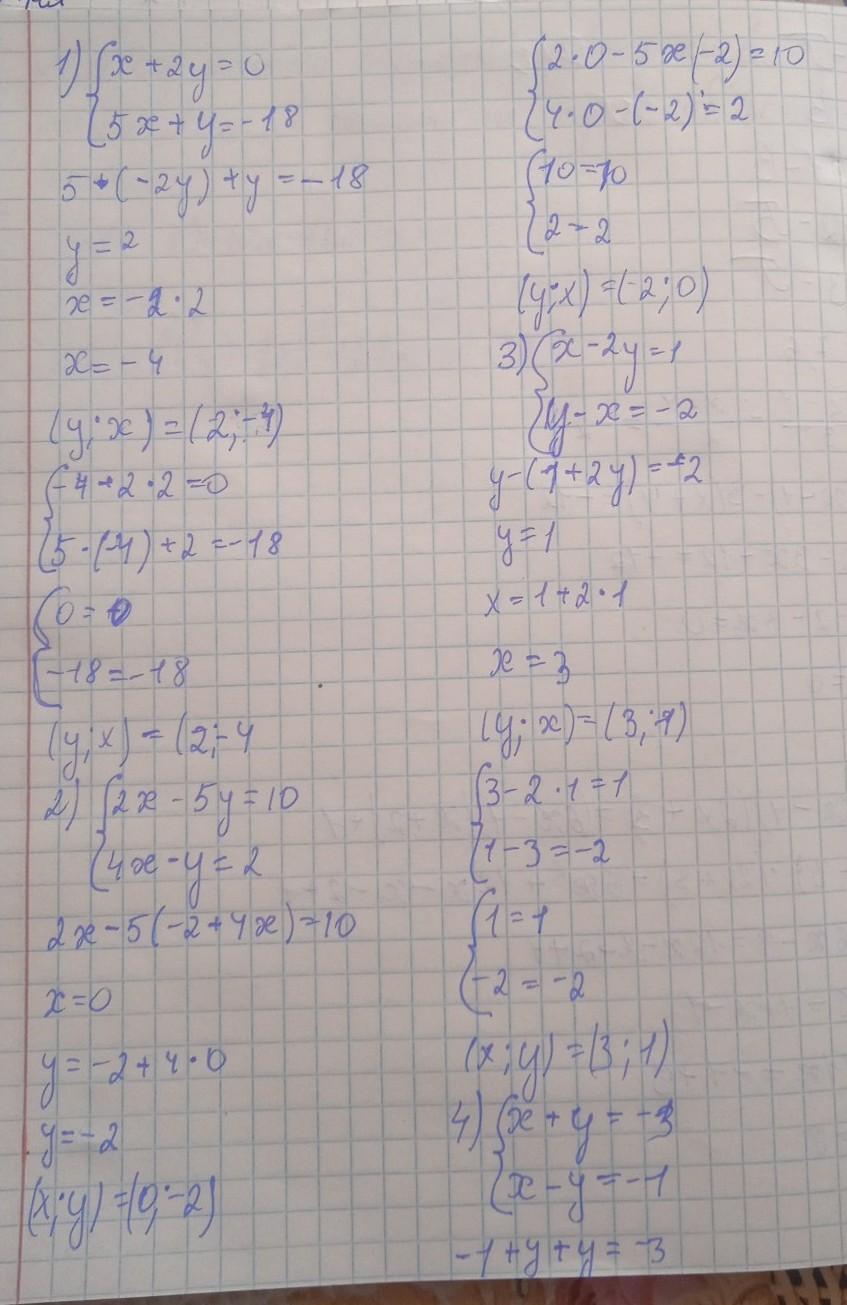 1) {x + 2y = 0
{5x + y = -18
5 · (-2y) + y = -18
y = 2
x = -2 · 2
x = -4
(y; x) = (2; -4)
{-4 + 2 · 2 = 0
{5 · (-4) + 2 = -18
{0 = 0
{-18 = -18
(y; x) = (2; -4
2) {2x - 5y = 10
{4x - y = 2
2x - 5(-2 + 4x) = 10
x = 0
y = -2 + 4 · 0
y = -2
(x; y) = (0; -2)
{2 · 0 - 5 x (-2) = 10
{4 · 0 - (-2) = 2
{10 = 10
{2 = 2
(y; x) = (-2; 0)
3) {x - 2y = 1
{y - x = -2
y - (1 + 2y) = -2
y = 1
x = 1 + 2 · 1
x = 3
(y; x) = (3; 1)
{3 - 2 · 1 = 1
{1 - 3 = -2
{1 = 1
{-2 = -2
(x; y) = (3; 1)
4) {x + y = -3
{x - y = -1
-1 + y + y = -3